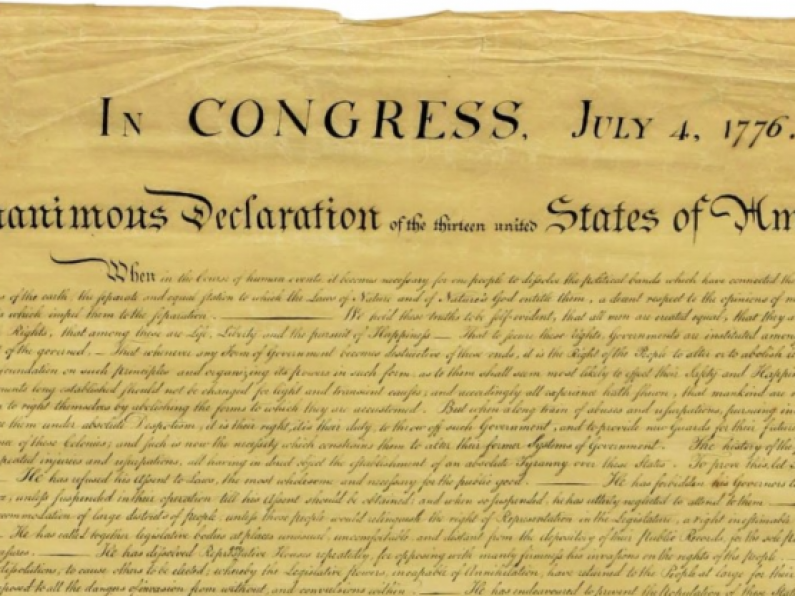 In CONGRESS, July 4, 1776.
nanimous Declaration of the thirteen united States of Am
When in the Course of human events it becomes necessary for one people to dissolve the political bands which have connected the
s of the earth, the separate and equal station to which the Laws of Nature and of Nature's God entitle them, a decent respect to the opinions of m
s which impel them to the separation. ——— We hold these truths to be self-evident, that all men are created equal, that they a
Rights, that among these are Life, Liberty and the pursuit of Happiness — That to secure these rights, Governments are instituted among
t of the governed, — That whenever any Form of Government becomes destructive of these ends, it is the Right of the People to alter or to abolish it
foundation on such principles and organizing its powers in such form, as to them shall seem most likely to effect their Safety and Happin
ments long established should not be changed for light and transient causes; and accordingly all experience hath shewn, that mankind are m
n to right themselves by abolishing the forms to which they are accustomed. But when a long train of abuses and usurpations, pursuing in
e them under absolute Despotism, it is their right, it is their duty, to throw off such Government, and to provide new Guards for their future
nce of these Colonies; and such is now the necessity which constrains them to alter their former Systems of Government. The history of the
epeated injuries and usurpations, all having in direct object the establishment of an absolute Tyranny over these States. To prove this let
He has refused his Assent to Laws, the most wholesome and necessary for the public good. ——— He has forbidden his Governors to
e, unless suspended in their operation till his Assent should be obtained; and when so suspended, he has utterly neglected to attend to them
commodation of large districts of people, unless those people would relinquish the right of Representation in the Legislature, a right inestimable
He has called together legislative bodies at places unusual, uncomfortable, and distant from the depository of their Public Records, for the sole p
easures. ——— He has dissolved Representative Houses repeatedly, for opposing with manly firmness his invasions on the rights of the people.
dissolutions, to cause others to be elected; whereby the Legislative powers, incapable of Annihilation, have returned to the People at large for their
xposed to all the dangers of invasion from without, and convulsions within. ——— He has endeavoured to prevent the population of these Stat